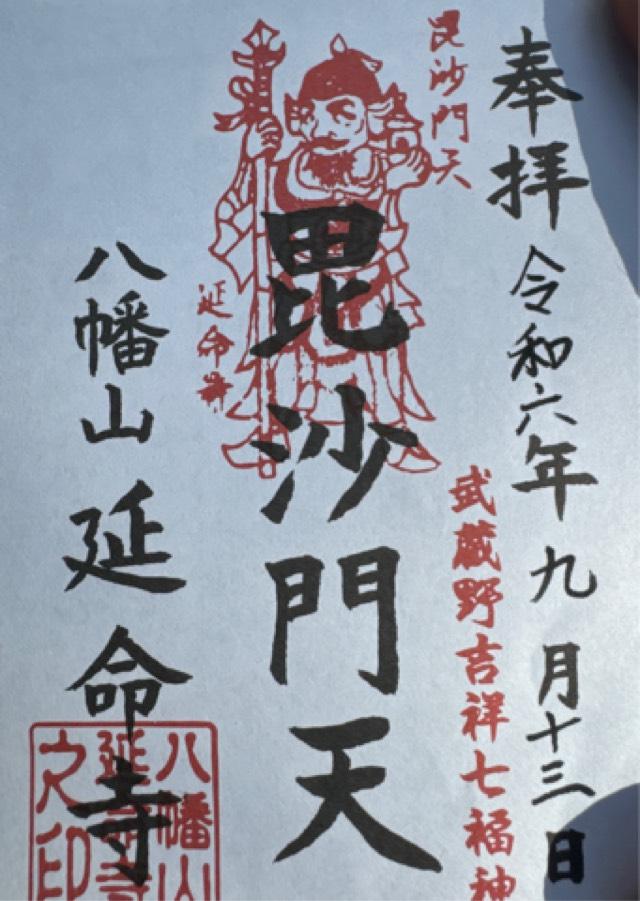 奉拝 令和六年九月十三日
武蔵野吉祥七福神
毘沙門天
毘沙門天
延命寺
八幡山 延命寺
八幡山
延命寺
之印